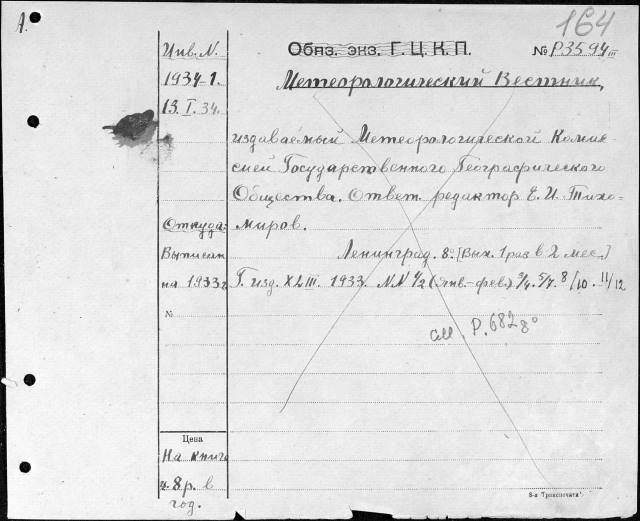 А.
164
Инв. N.
Обяз. экз. Г. Ц. К. П.
№ Р3594 III
1934-1.
Метеорологический Вестник,
13. I. 34.
издаваемый Метеорологической Комис-
сией Государственного Географического
Общества. Ответ. редактор Е. И. Тихо-
Откуда:
миров.
Выписан
Ленинград. 8° [Вых. 1 раз в 2 мес.]
на 1933 г.
Г. изд. XLIII. 1933. NN 1/2 (янв.-фев.) 3/4. 5/7. 8/10. 11/12
№
см. Р. 682 8°
Цена
На книге
ц. 8 р. в
год.
8-я "Транспечати".